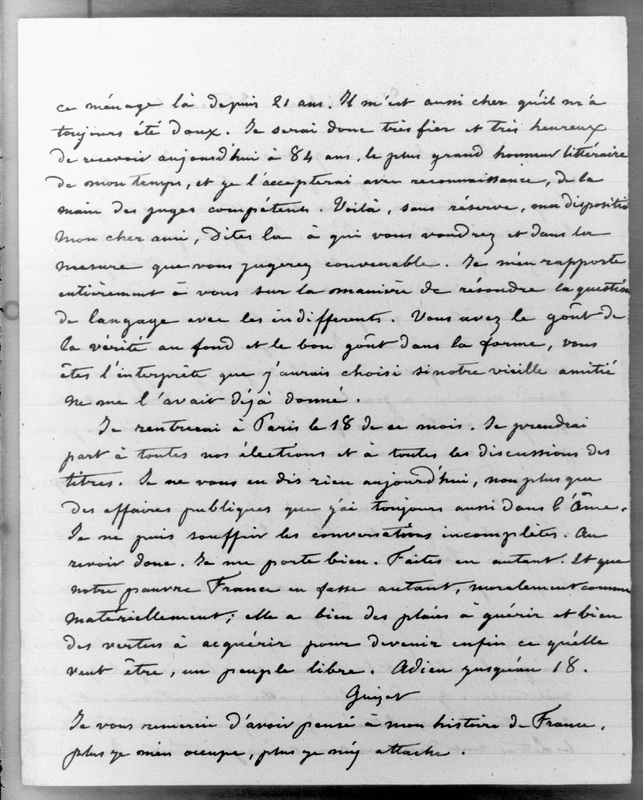 ce ménage là depuis 21 ans. Il m'est aussi cher qu'il m'a
toujours été doux. Je serai donc très fier et très heureux
de recevoir aujourd'hui à 84 ans, le plus grand honneur littéraire
de mon temps, et je l'accepterai avec reconnaissance, de la
main des juges compétents. Voilà, sans réserve, ma dispositio
mon cher ami, Dites la à qui vous voudrez et dans la
mesure que vous jugerez convenable. Je m'en rapporte
entièrement à vous sur la manière de résoudre la question
de langage avec les indifférents. Vous avez le goût de
la vérité au fond et le bon goût dans la forme, vous
êtes l'interprète que j'aurais choisi si notre vieille amitié
ne me l'avait déjà donné.
Je rentrerai à Paris le 18 de ce mois. Je prendrai
part à toutes nos élections et à toutes les discussions des
titres. Je ne vous en dis rien aujourd'hui, non plus que
des affaires publiques que j'ai toujours aussi dans l'âme.
Je ne puis souffrir les conversations incomplètes. Au
revoir donc. Je me porte bien. Faites en autant. Et que
notre pauvre France en fasse autant, moralement comme
matériellement; elle a bien des plaies à guérir et bien
des vertus à acquérir pour devenir enfin ce qu'elle
veut être, un peuple libre. Adieu jusqu'au 18.
Guizot
Je vous remercie d'avoir pensé à mon histoire de France.
plus je m'en occupe, plus je m'y attache.